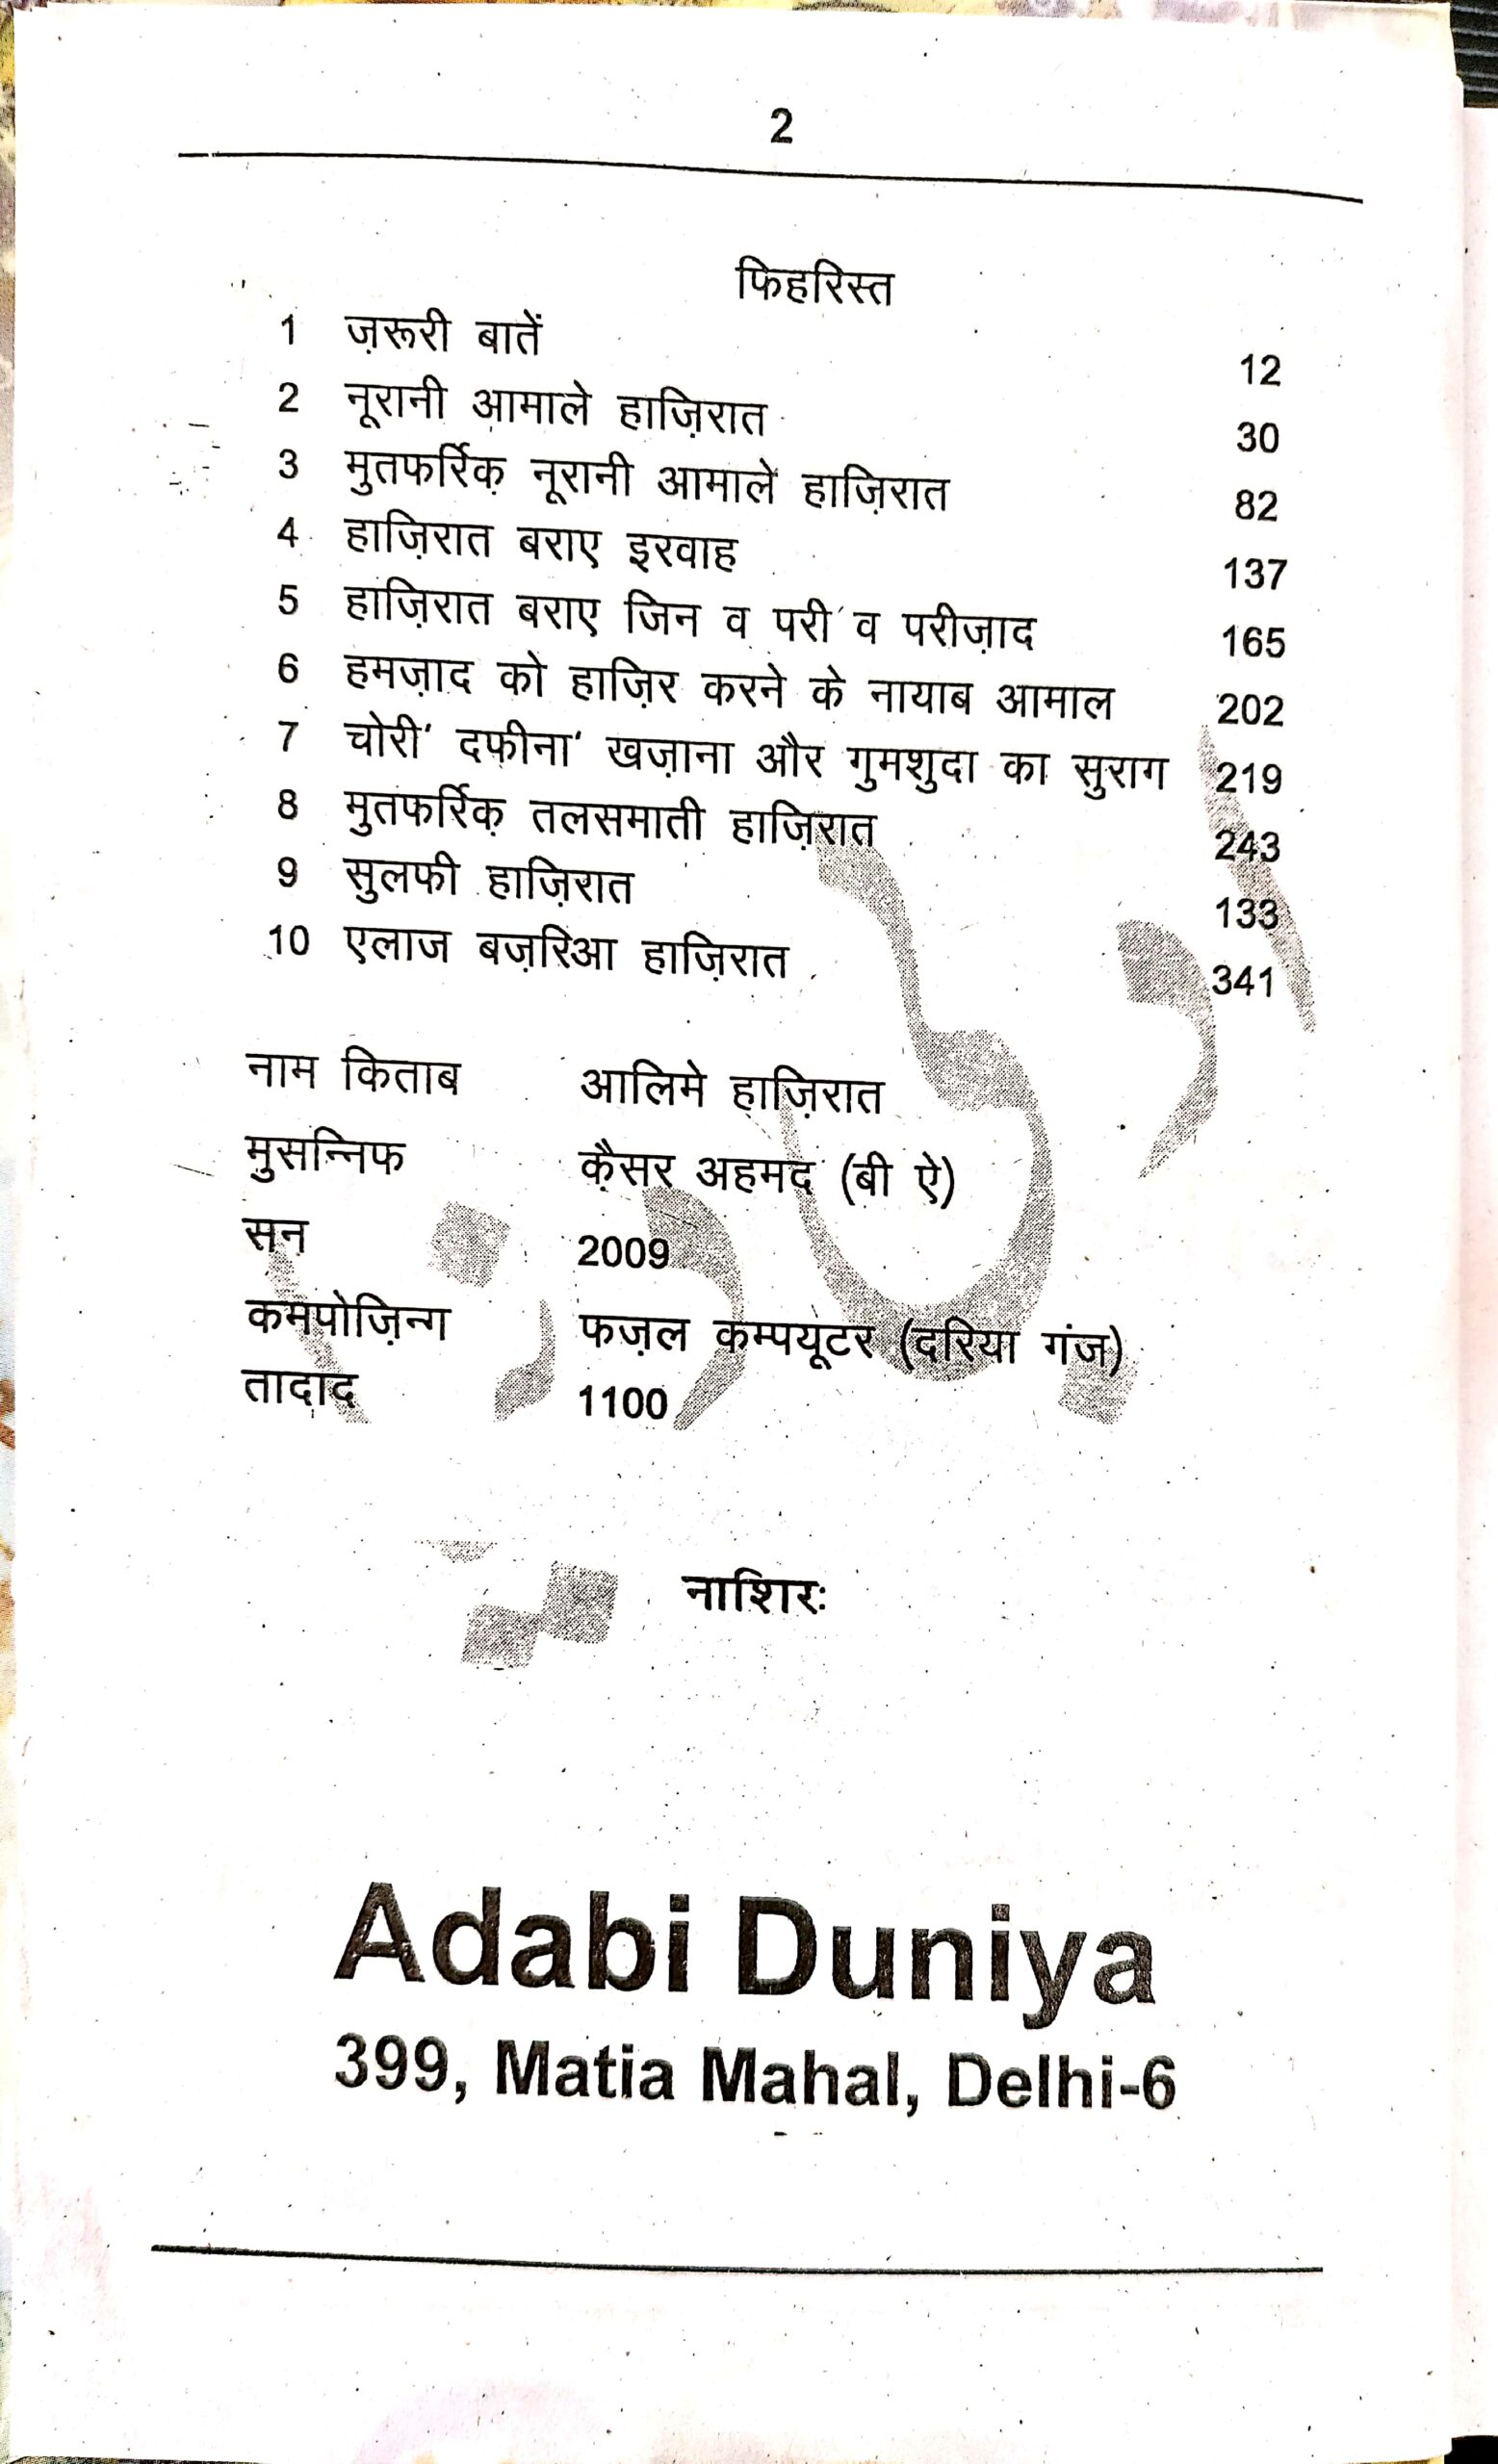 2
फिहरिस्त
1 ज़रूरी बातें 12
2 नूरानी आमाले हाज़िरात 30
3 मुतफर्रिक़ नूरानी आमाले हाज़िरात 82
4 हाज़िरात बराए इरवाह 137
5 हाज़िरात बराए जिन व परी व परीज़ाद 165
6 हमज़ाद को हाज़िर करने के नायाब आमाल 202
7 चोरी' दफ़ीना' खज़ाना और गुमशुदा का सुराग 219
8 मुतफर्रिक़ तलसमाती हाज़िरात 243
9 सुलफी हाज़िरात 133
10 एलाज बज़रिआ हाज़िरात 341
नाम किताब आलिमे हाज़िरात
मुसन्निफ क़ैसर अहमद (बी ऐ)
सन 2009
कमपोज़िन्ग फज़ल कम्पयूटर (दरिया गंज)
तादाद 1100
नाशिरः
Adabi Duniya
399, Matia Mahal, Delhi-6